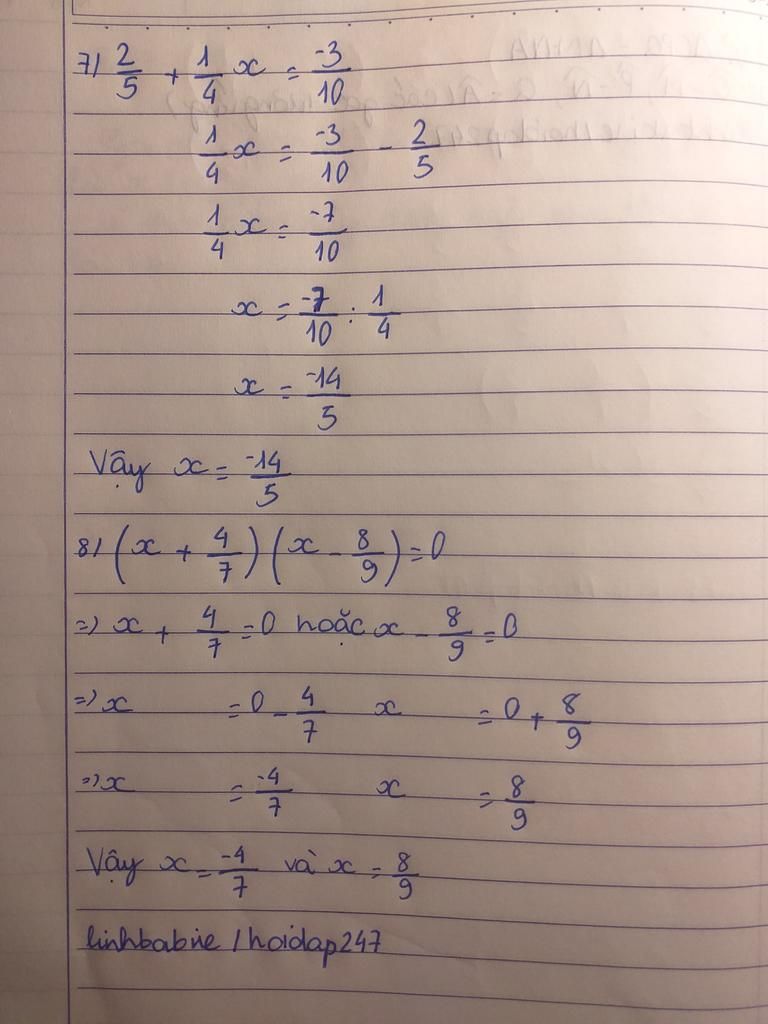 7) 2/5 + 1/4 x = -3/10
1/4 x = -3/10 - 2/5
1/4 x = -7/10
x = -7/10 : 1/4
x = -14/5
Vậy x = -14/5
8) (x + 4/7) (x - 8/9) = 0
=> x + 4/7 = 0 hoặc x - 8/9 = 0
=> x = 0 - 4/7 x = 0 + 8/9
=> x = -4/7 x = 8/9
Vậy x = -4/7 và x = 8/9
linhbabie / hoidap247